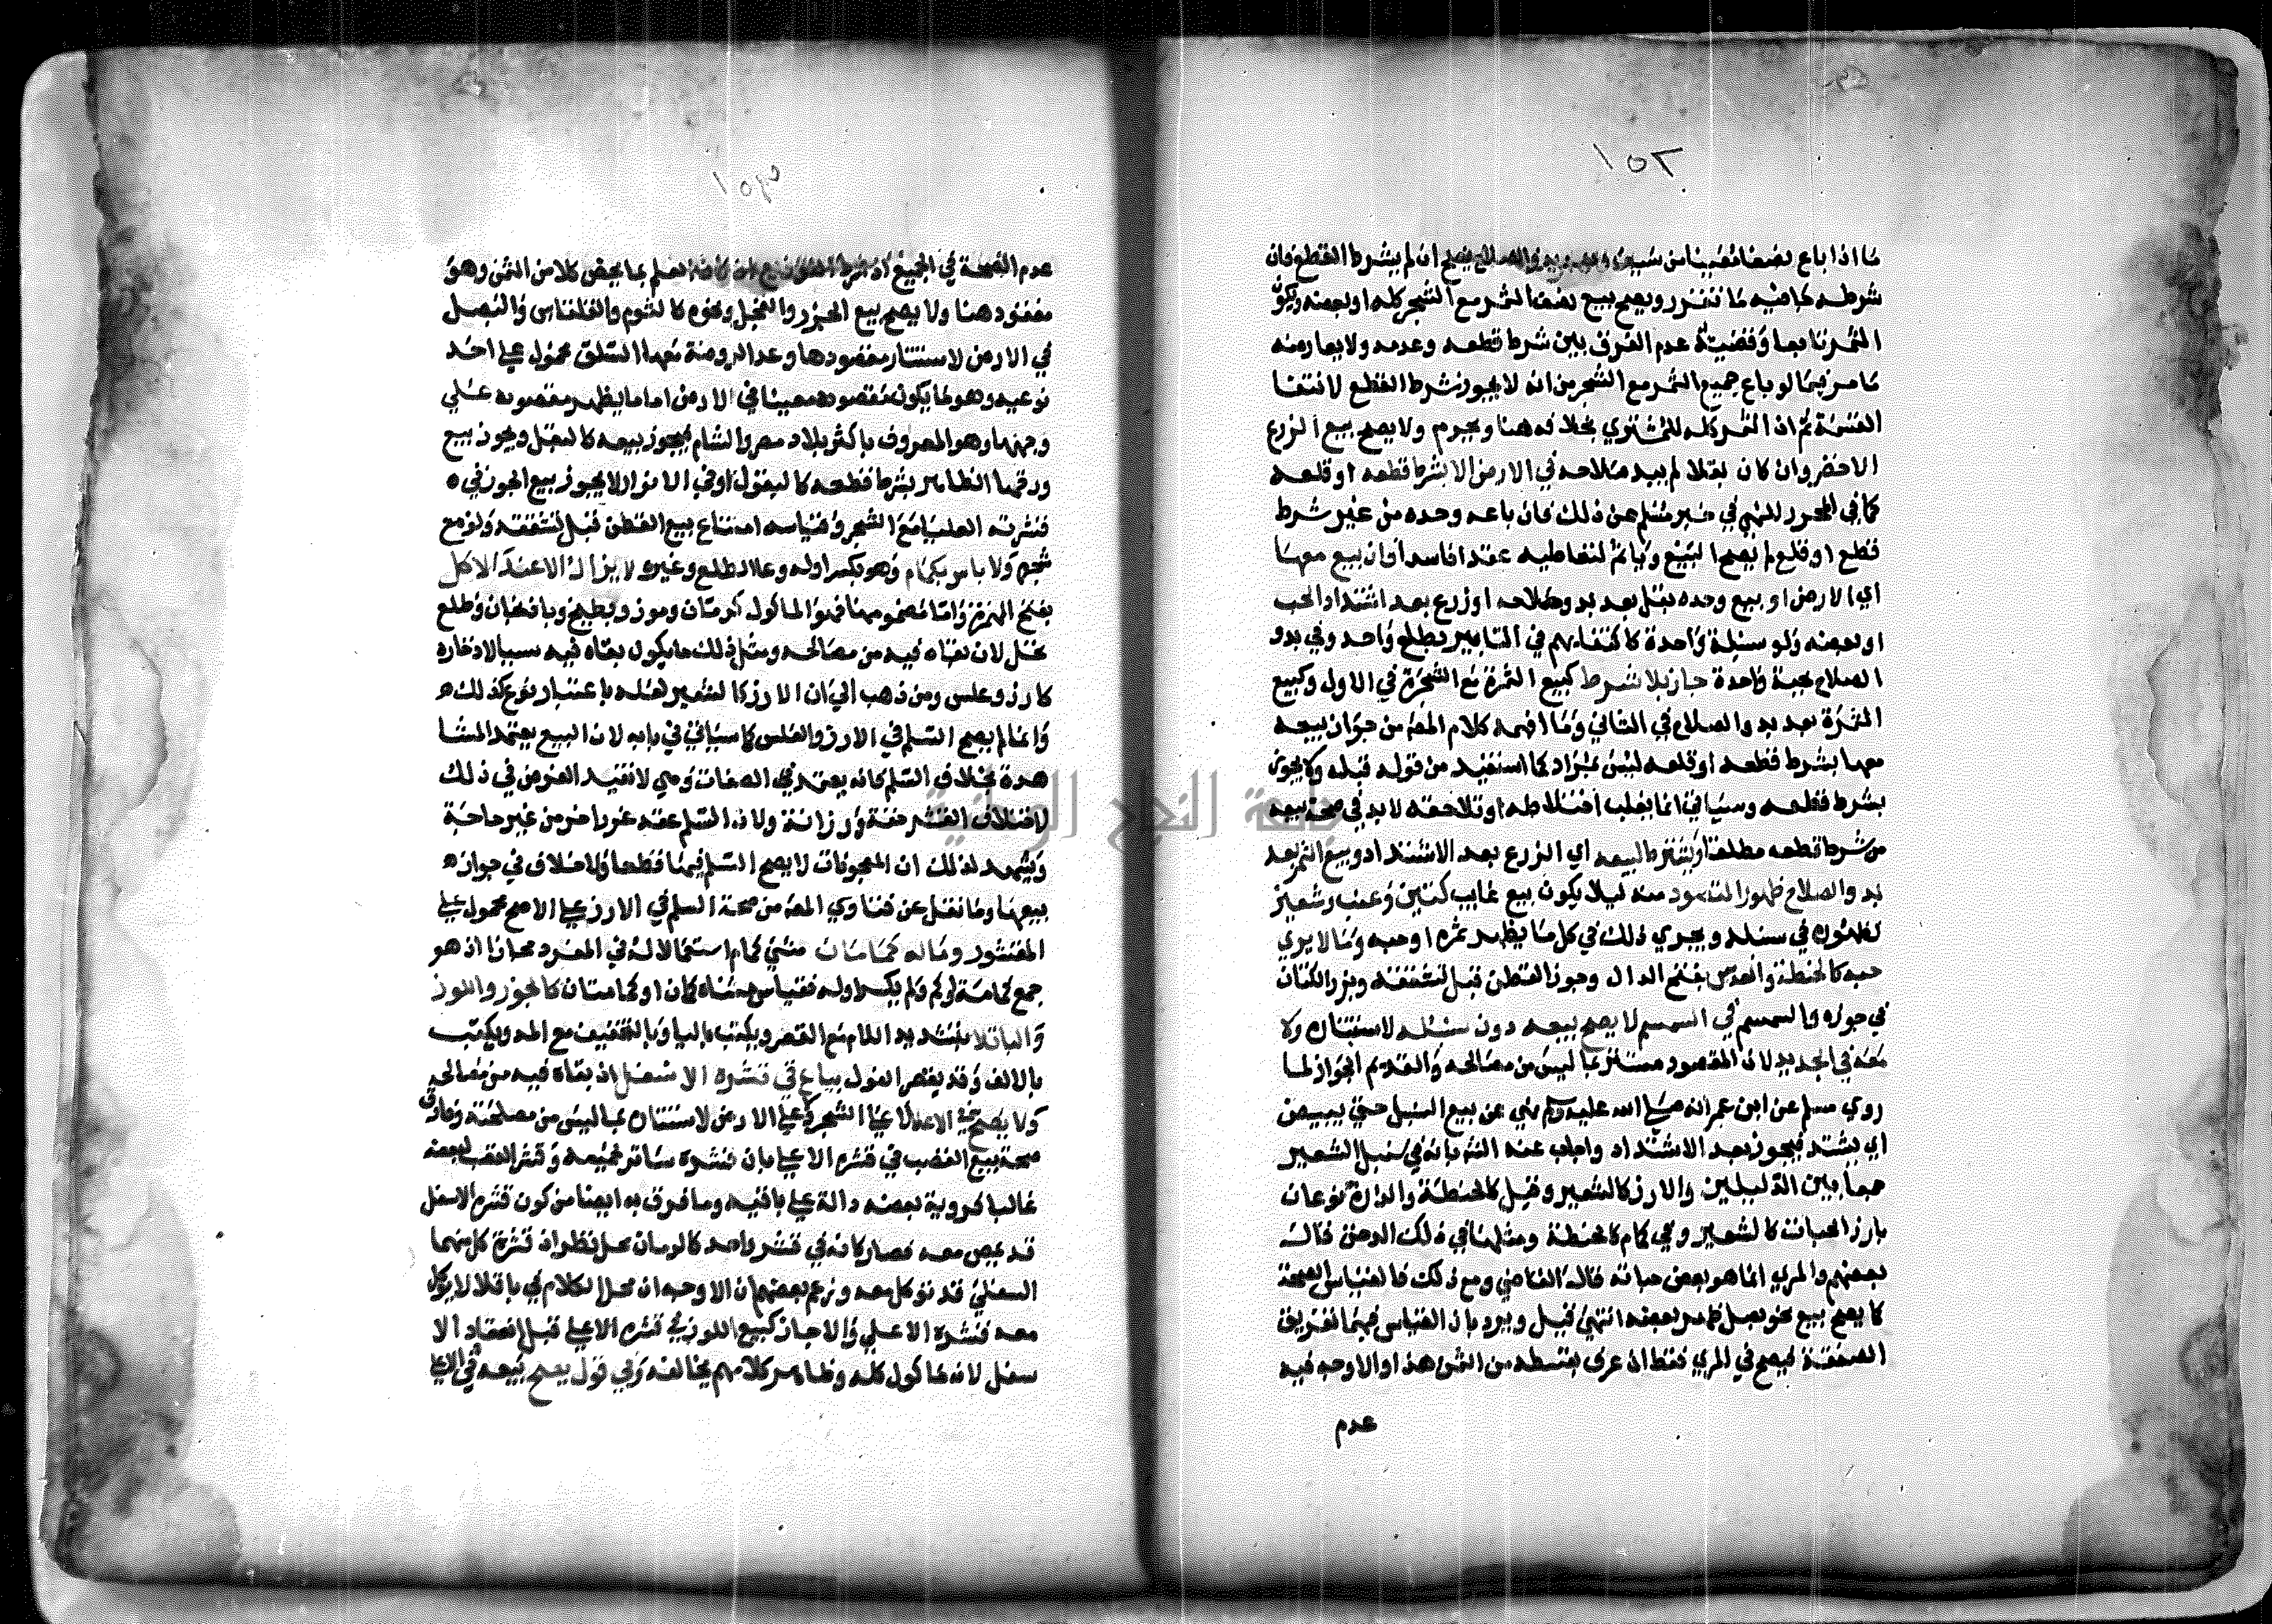 ١٥٢
ما اذا باع نصفا معينا من سيفه وبعد بدو الصلاح يصح ان لم يشرط القطع فان
شرطه ففيه ما تقرر ويصح بيع نصف الثمر مع الشجر كله او بعضه ويكون
الثمر تابعا وقضيته عدم الفرق بين شرط قطعه وعدمه ولا يعارضه
ما مر فيما لو باع جميع الثمر مع الشجر من انه لا يجوز شرط القطع لانتفا
القسمة ثم اذ الثمر كله للمشتري بخلافه هنا ويحرم ولا يصح بيع الزرع
الاخضر وان كان بقلا لم يبد صلاحه في الارض الا بشرط قطعه او قلعه
كما في المحرر للنهي في خبر مسلم عن ذلك فان باعه وحده من غير شرط
قطع او قلع لم يصح البيع ويأثم لتعاطيه عقدا فاسدا وان بيع معها
اي الارض او بيع وحده بقل بعد بدو صلاحه او زرع بعد اشتداد الحب
او بعضه ولو سنبلة واحدة كاكتفائهم في التابير بطلع واحد وفي بدو
الصلاح بحبة واحدة جاز بلا شرط كبيع الثمرة مع الشجرة في الاول وكبيع
الثمرة بعد بدو الصلاح في الثاني وما افهمه كلام المص من جواز بيعه
معها بشرط قطعه او قلعه ليس بمراد كما استفيد من قوله قبله ولا يجوز
بشرط قطعه وسياتي انما يغلب اختلاطه او تلاحقه لا بد في صحة بيعه
من شرط قطعه مطلقا ويشترط لبيعه اي الزرع بعد الاشتداد وبيع الثمر بعد
بدو الصلاح ظهور المقصود منه ليلا يكون بيع غايب كتين وعنب وشعير
لظهوره في سنبله ويجري ذلك في كل ما يظهر ثمره او حبه وما لا يرى
حبه كالحنطة والعدس بفتح الدال وجوز القطن قبل تشققه وبزر الكتان
في جوزه والسمسم في السمسم لا يصح بيعه دون سنبله لاستتاره ولا
معه في الجديد لان المقصود مستتر بما ليس من مصالحه والقديم الجواز لما
روي مسلم عن ابن عمر انه صلى الله عليه وسلم نهى عن بيع السنبل حتى يبيض
اي يشتد فيجوز بعد الاشتداد واجاب عنه بانه في سنبل الشعير
جمعا بين الدليلين والارز كالشعير وقيل كالحنطة والذرة نوعان
بارز الحبات كالشعير وفي كمام كالحنطة ومثلها في ذلك الدخن قاله
بعضهم والمرئي انما هو بعض حباته قاله القاضي ومع ذلك فالقياس الصحة
كما يصح بيع نحو بصل ظهر بعضه انتهى قيل ويرد بان القياس فيهما تفريق
الصفقة فيصح في المرئي فقط ان عرف بقسطه من الثمن هذا والاوجه فيه
عدم
١٥٣
عدم الصحة في الجميع اذ شرط العلم بما يخص كلا من الثمن وهو
مفقود هنا ولا يصح بيع الجزر والفجل ونحوه كالثوم والقلقاس والبصل
في الارض لاستتار مقصودها وعد الروضة منها السلق محمول على احد
نوعيه وهو ما يكون مقصوده مغيبا في الارض اما ما يظهر مقصوده على
وجهها وهو المعروف باكثر بلاد مصر والشام فيجوز بيعه كالبقل ويجوز بيع
ورقها الظاهر بشرط قطعه كالبقول وفي الانوار لا يجوز بيع الجوز في
قشرته العليا مع الشجر وقياسه امتناع بيع القطن قبل تشققه ولو مع
شجره ولا باس بكمام وهو بكسر اوله وعاء الطلع وغيره لا يزال الا عند الاكل
بفتح الهمزة واما بضمها فهو الماكول كرمان وموز وبطيخ وباذنجان وطلع
نخل لان بقاه فيه من مصالحه ومثل ذلك ما يكون بقاه فيه سببا لادخاره
كارز وعلس ومن ذهب الى ان الارز كالشعير لعله باعتبار نوع كذلك
وانما لم يصح السلم في الارز والعلس كما سياتي في بابه لان البيع يعتمد المشا
هدة بخلاف السلم فانه يعتمد الصفات وهي لا تفيد الغرض في ذلك
لاختلاف القشر خفة ورزانة ولان السلم عقد غرر اخر من غير حاجة
ويشهد لذلك ان المعجونات لا يصح السلم فيها قطعا ولا خلاف في جواز
بيعها وما نقل عن فتاوي المص من صحة السلم في الارز على الاصح محمول على
المقشور وماله كمامان مثنى كمام استعمالا له في المفرد مجازا اذ هو
جمع كمامة او كم ولم بكسر اوله فقياس مثناه كمان او كمامتان كالجوز واللوز
والباقلا بتشديد اللام مع القصر ويكتب باليا وبالتخفيف مع المد ويكتب
بالالف وقد يقصر الفول يباع في قشره الاسفل اذ بقاه فيه من مصالحه
ولا يصح في الاعلى لا على الشجر ولا على الارض لاستتاره بما ليس من مصلحته وفارق
صحة بيع القصب في قشره الاعلى بان قشره ساتر لجميعه وقشر القصب لبعضه
غالبا فروية بعضه دالة على باقيه وما فرق به ايضا من كون قشره الاسفل
قد يمص معه فصار كانه في قشر واحد كالرمان محل نظر اذ قشرة كل منهما
السفلى قد تؤكل معه وزعم بعضهم ان الاوجه ان محل الكلام في باقلا لا يؤكل
معه قشره الاعلى والا جاز كبيع اللوز في قشره الاعلى قبل انعقاد الا
سفل لانه ماكول كله وظاهر كلامهم يخالفه وفي قول يصح بيعه في الاعلى